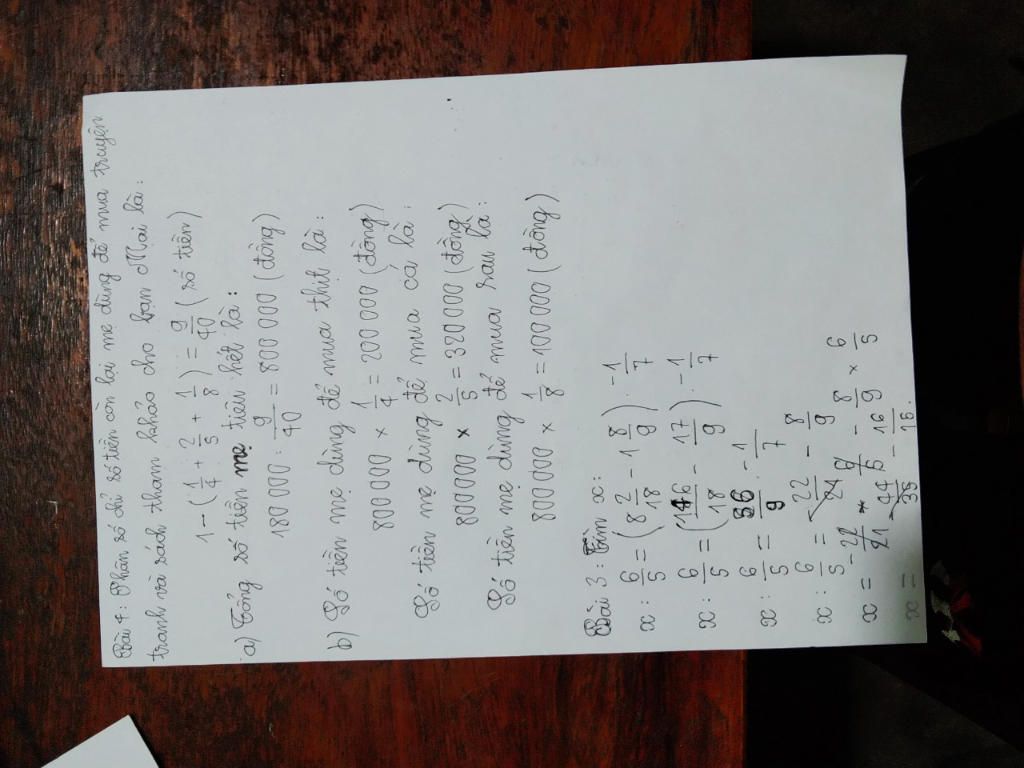 Bài 4: Phân số chỉ số tiền còn lại mẹ dùng để mua truyện
tranh và sách tham khảo cho bạn Mai là:
1 - (1/4 + 2/5 + 1/8) = 9/40 (số tiền)
a) Tổng số tiền mẹ tiêu hết là:
180 000 : 9/40 = 800 000 (đồng)
b) Số tiền mẹ dùng để mua thịt là:
800 000 × 1/4 = 200 000 (đồng)
Số tiền mẹ dùng để mua cá là:
800 000 × 2/5 = 320 000 (đồng)
Số tiền mẹ dùng để mua rau là:
800 000 × 1/8 = 100 000 (đồng)
Bài 3: Tìm x:
x : 6/5 = (8 2/18 - 1 8/9) . 1/7
x : 6/5 = (146/18 - 17/9) . 1/7
x : 6/5 = 56/9 . 1/7
x : 6/5 =
8/9
x =
8/9 × 6/5
x =